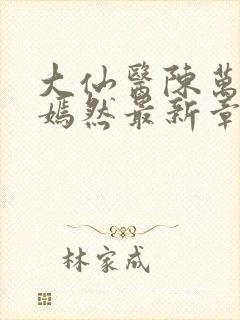 大仙醫陳萬
嫣然最新章
林家成